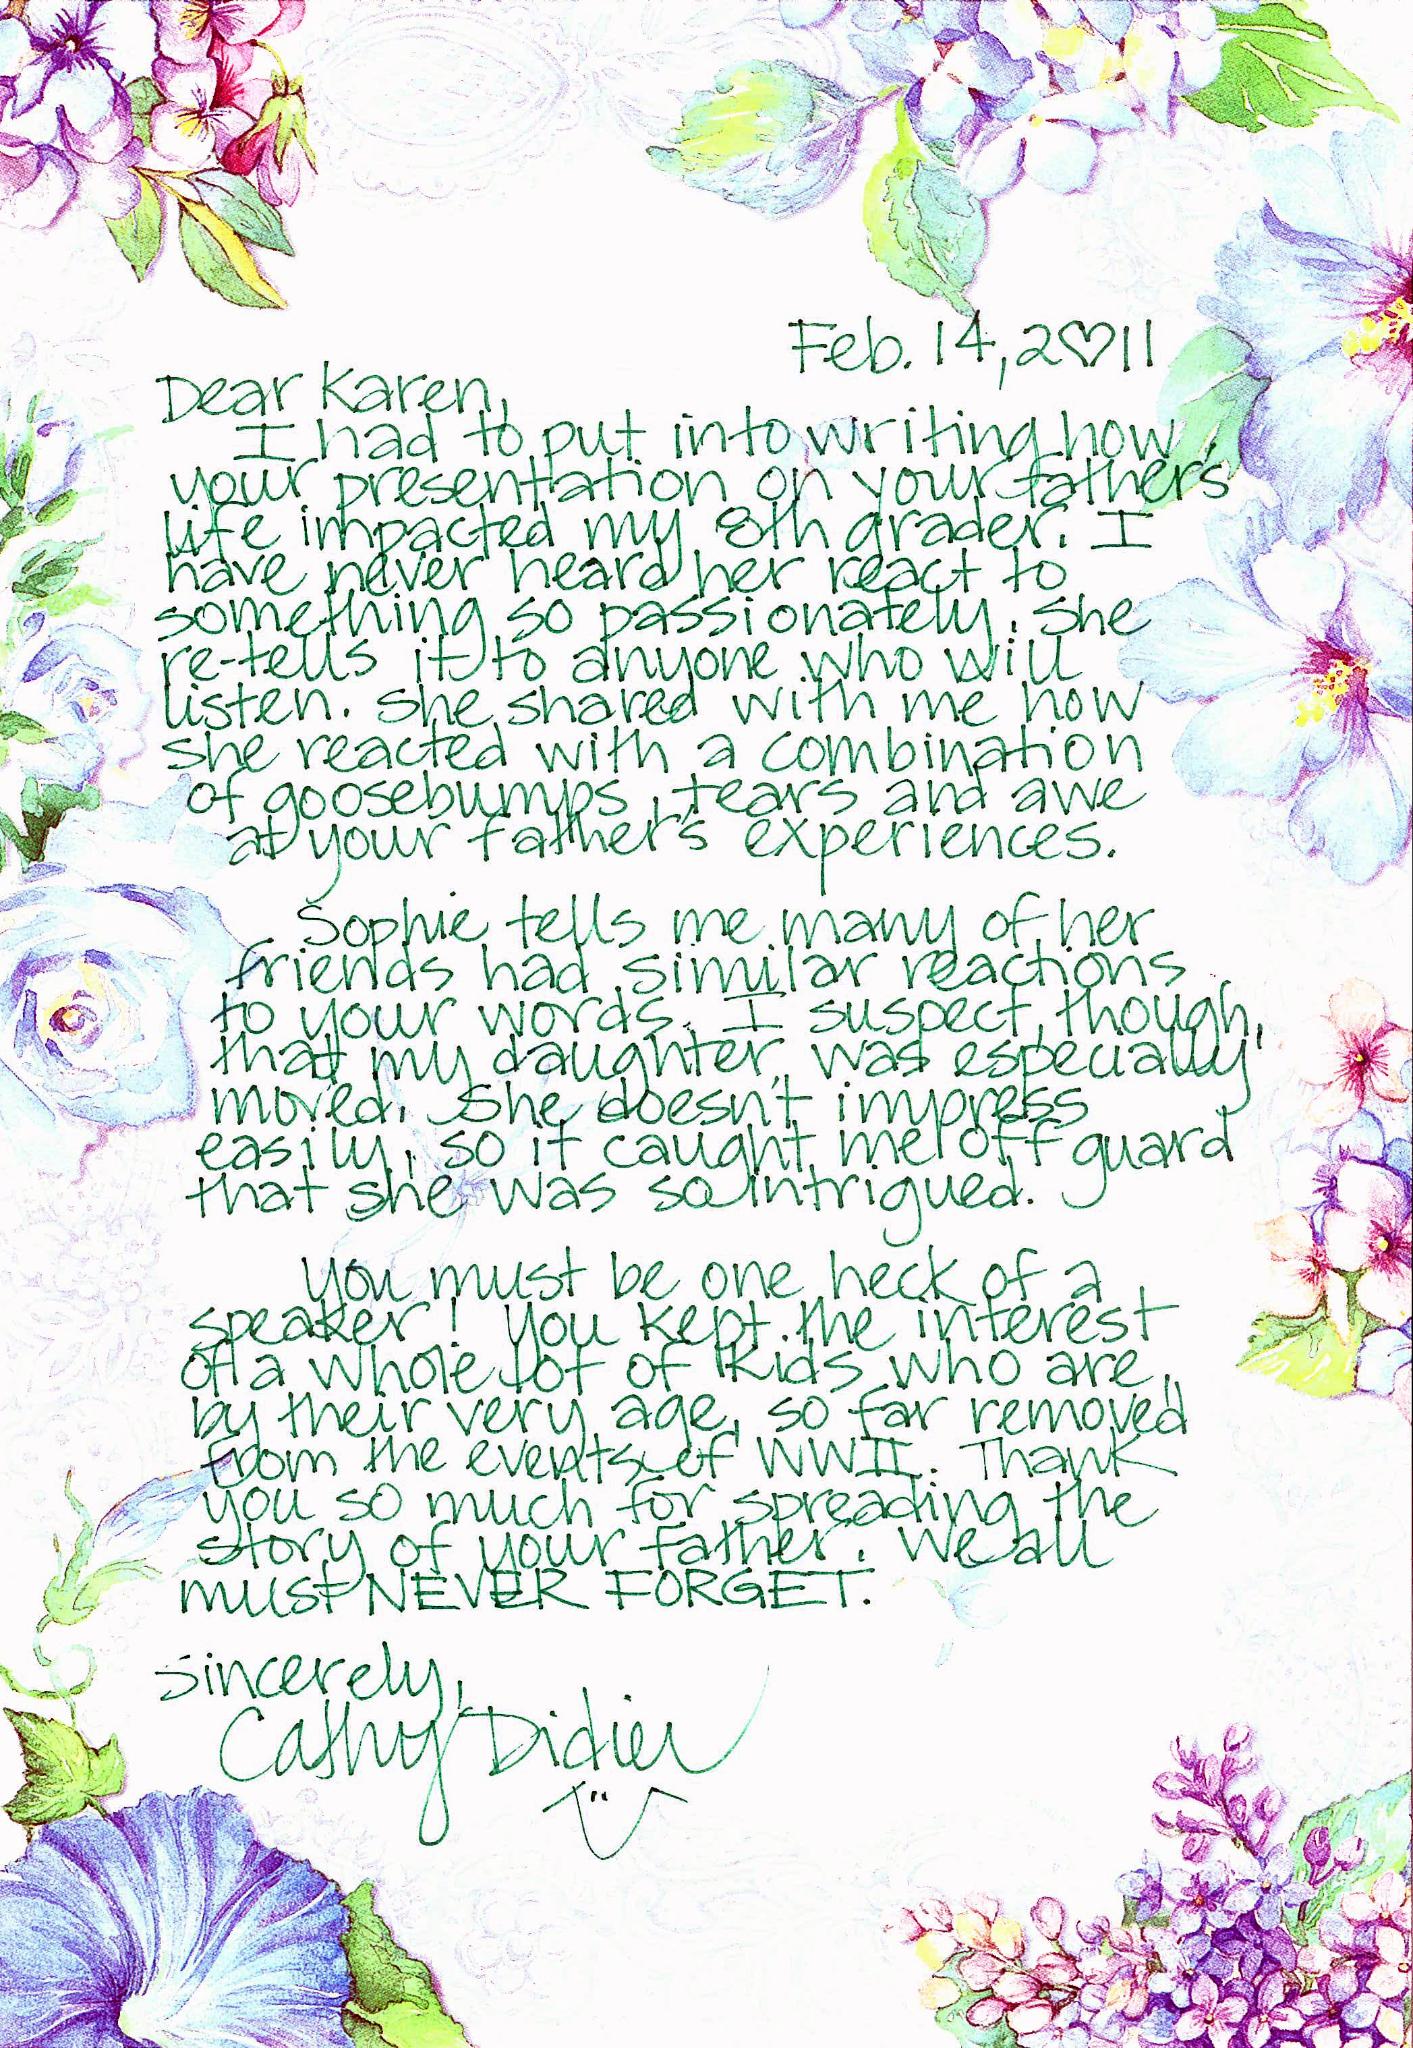 Feb. 14, 2♡11
Dear Karen,
I had to put into writing how
your presentation on your father's
life impacted my 8th grader. I
have never heard her react to
something so passionately. She
re-tells it to anyone who will
listen. She shared with me how
she reacted with a combination
of goosebumps, tears and awe
at your father's experiences.
Sophie tells me many of her
friends had similar reactions
to your words. I suspect, though,
that my daughter was especially
moved. She doesn't impress
easily, so it caught me off guard
that she was so intrigued.
You must be one heck of a
speaker! You kept the interest
of a whole lot of kids who are,
by their very age, so far removed
from the events of WWII. Thank
you so much for spreading the
story of your father. We all
must NEVER FORGET.
Sincerely,
Cathy Didier